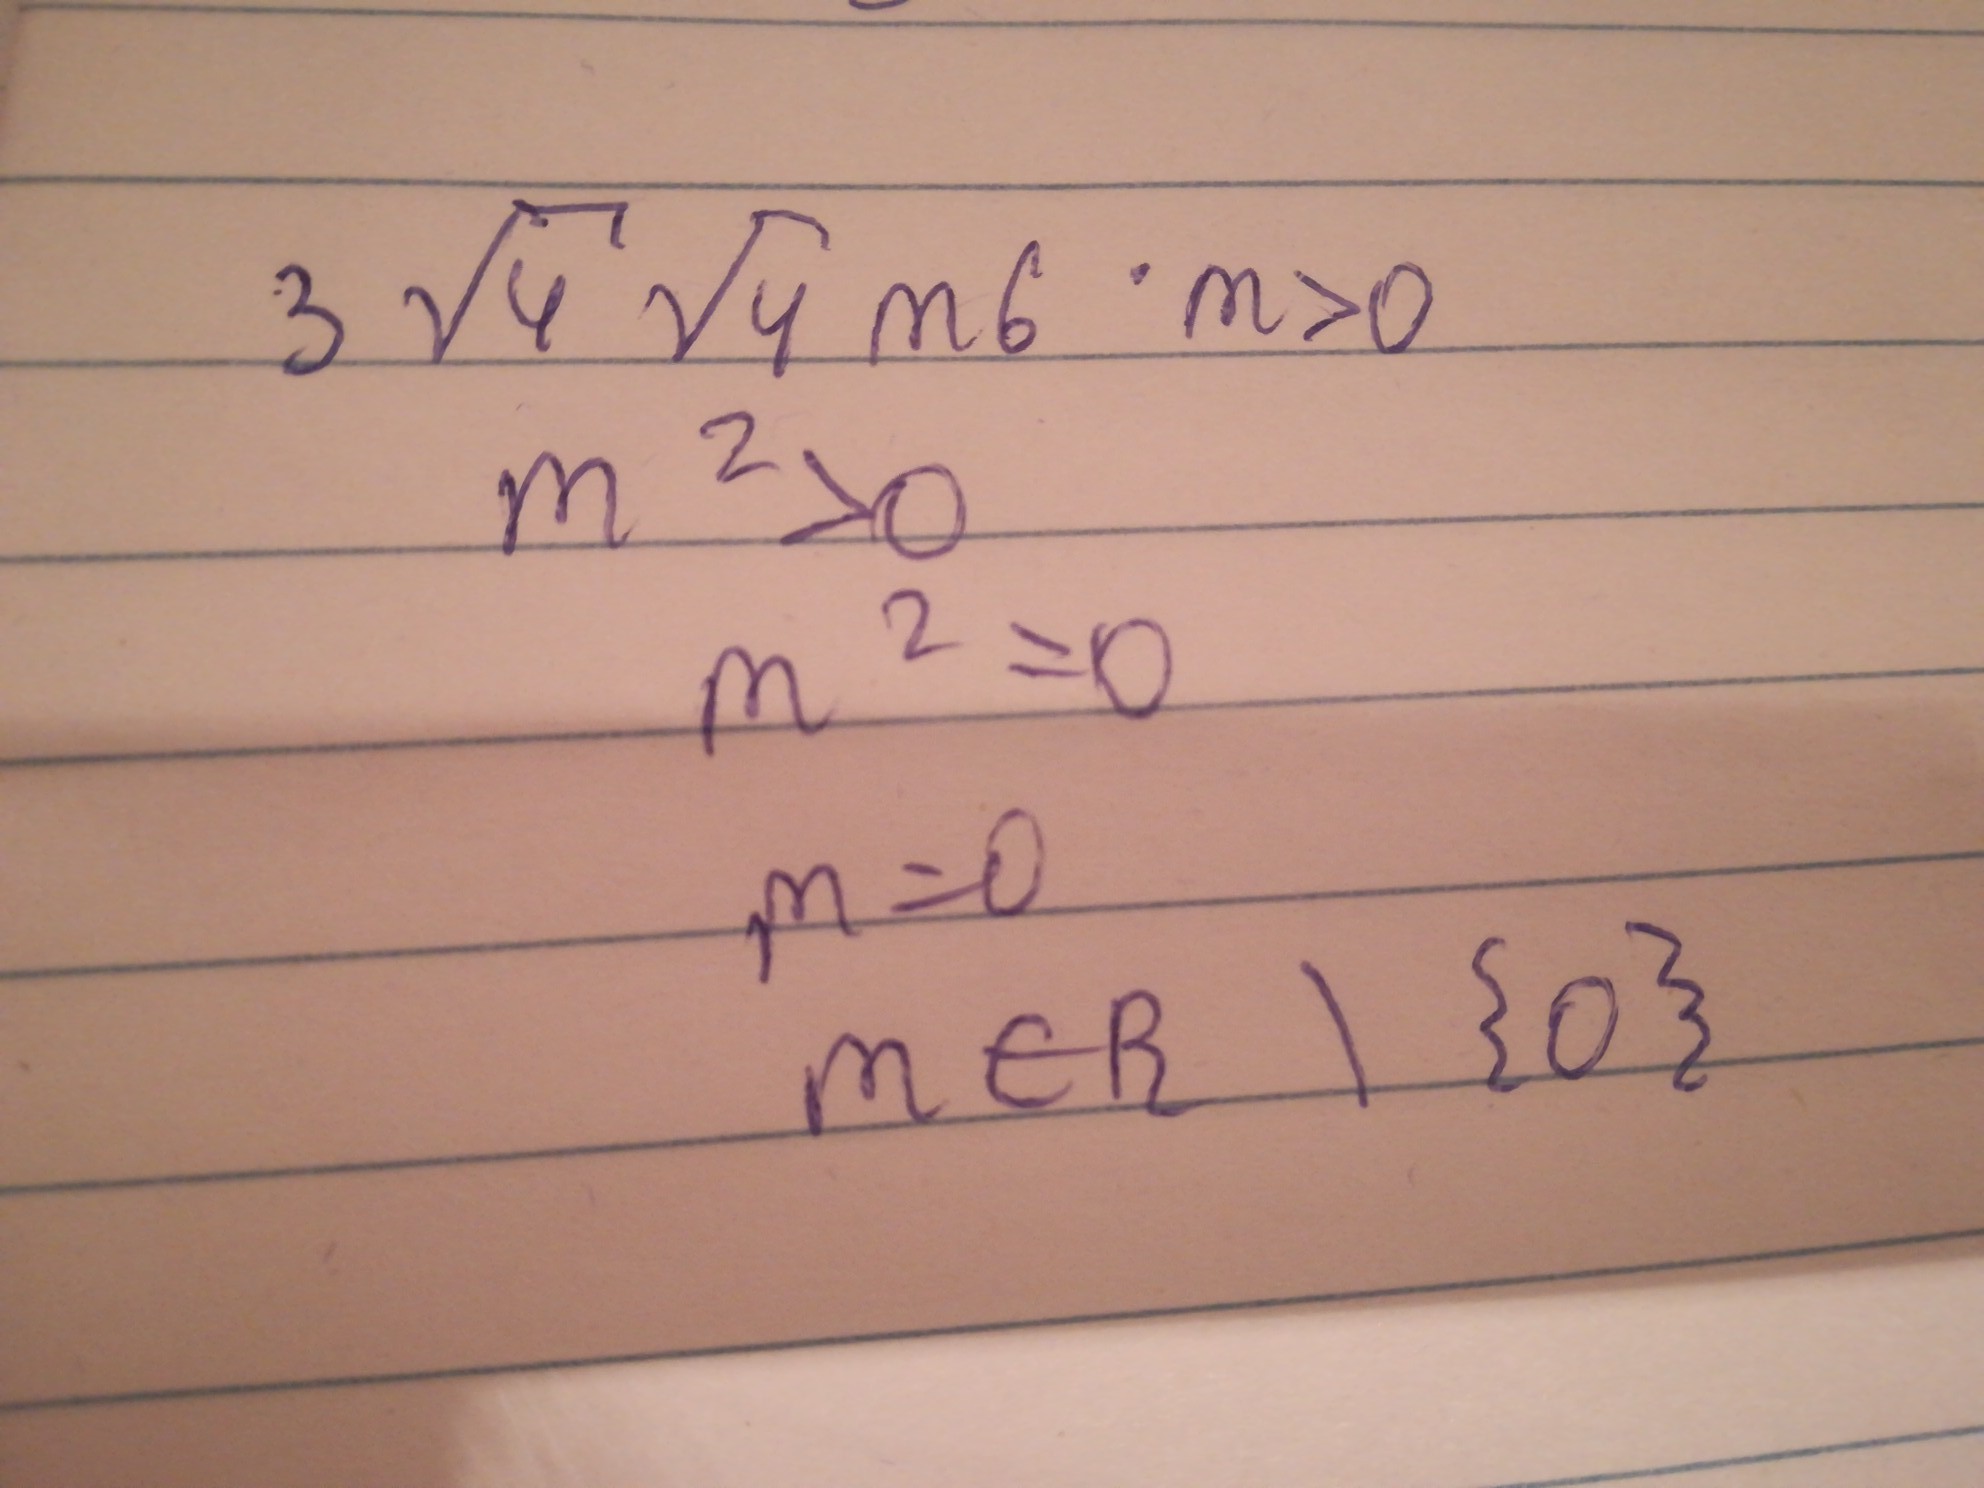 3 √4 √4 m6 · m>0
m²>0
m²=0
m=0
m∈R \ {0}